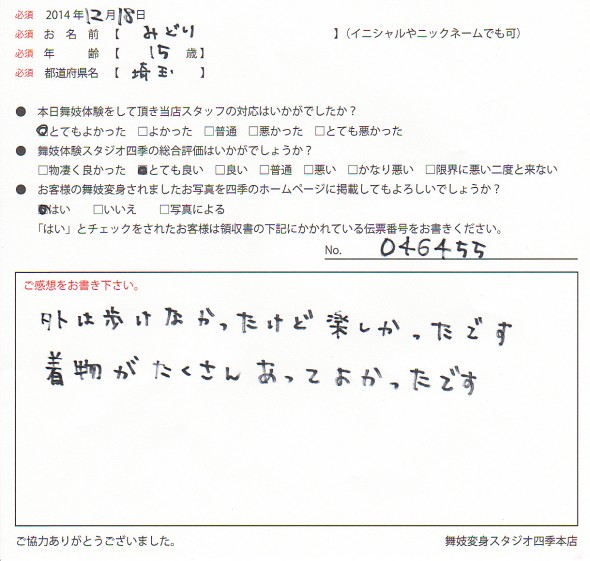 必須 2014年12月18日
必須 お名前【 みどり 】(イニシャルやニックネームでも可)
必須 年齢【 15 歳】
必須 都道府県名【 埼玉 】
● 本日舞妓体験をして頂き当店スタッフの対応はいかがでしたか?
☑とてもよかった □よかった □普通 □悪かった □とても悪かった
● 舞妓体験スタジオ四季の総合評価はいかがでしょうか?
□物凄く良かった ■とても良い □良い □普通 □悪い □かなり悪い □限界に悪い二度と来ない
● お客様の舞妓変身されましたお写真を四季のホームページに掲載してもよろしいでしょうか?
■はい □いいえ □写真による
「はい」とチェックをされたお客様は領収書の下記にかかれている伝票番号をお書きください。
No. 046455
ご感想をお書き下さい。
外は歩けなかったけど楽しかったです
着物がたくさんあってよかったです
ご協力ありがとうございました。 舞妓変身スタジオ四季本店